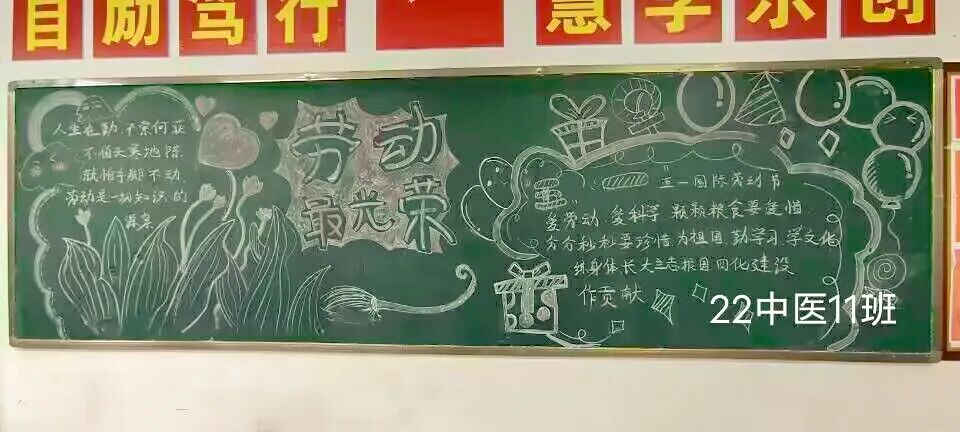 自励笃行
慧学乐创
人生在勤 不索何获
不怕天寒地陈
就怕手脚不动
劳动是一切知识的
源泉
劳动
最光荣
五一国际劳动节
爱劳动 爱科学 颗颗粮食要爱惜
分分秒秒要珍惜 为祖国 勤学习 学文化
练身体 长大立志报国 四化建设
作贡献
22中医11班